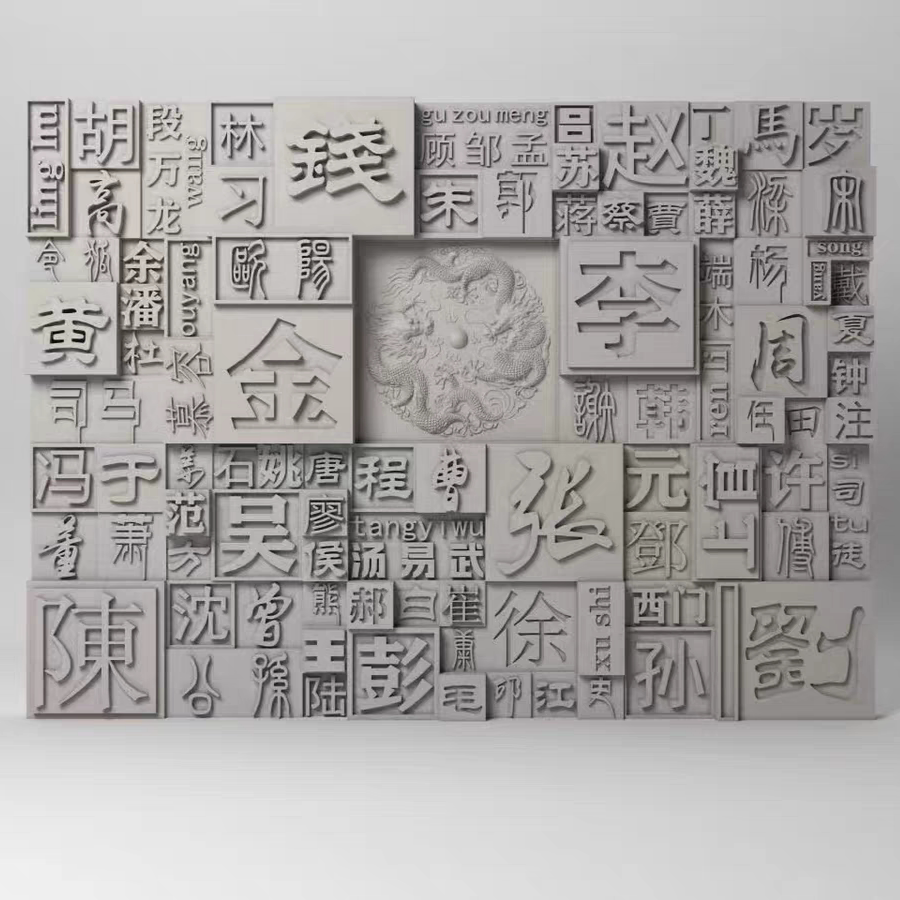 胡
段
万
龙
wang
林
习
錢
gu zou meng
顾 邹 孟
朱
郭
吕
苏
赵
丁
魏
馬
岁
蒋 蔡 賈 薛
梁
宋
高
令 狐
余
潘
杜
歐 陽
金
李
端
木
杨
song
戴
夏
钟
注
黄
司 马
謝
韩
ren
周
任 田
冯 于
姜
石 姚
唐
程 曹
张
元
鄧
许
傅
si
司
tu
徒
董 萧
范
方
吴
廖
侯
tang yi wu
汤 易 武
陳
沈
曾
公
孫
熊
王
陆
郝
彭
崔
萧
徐
xu shi
史
西门
孙
劉
江